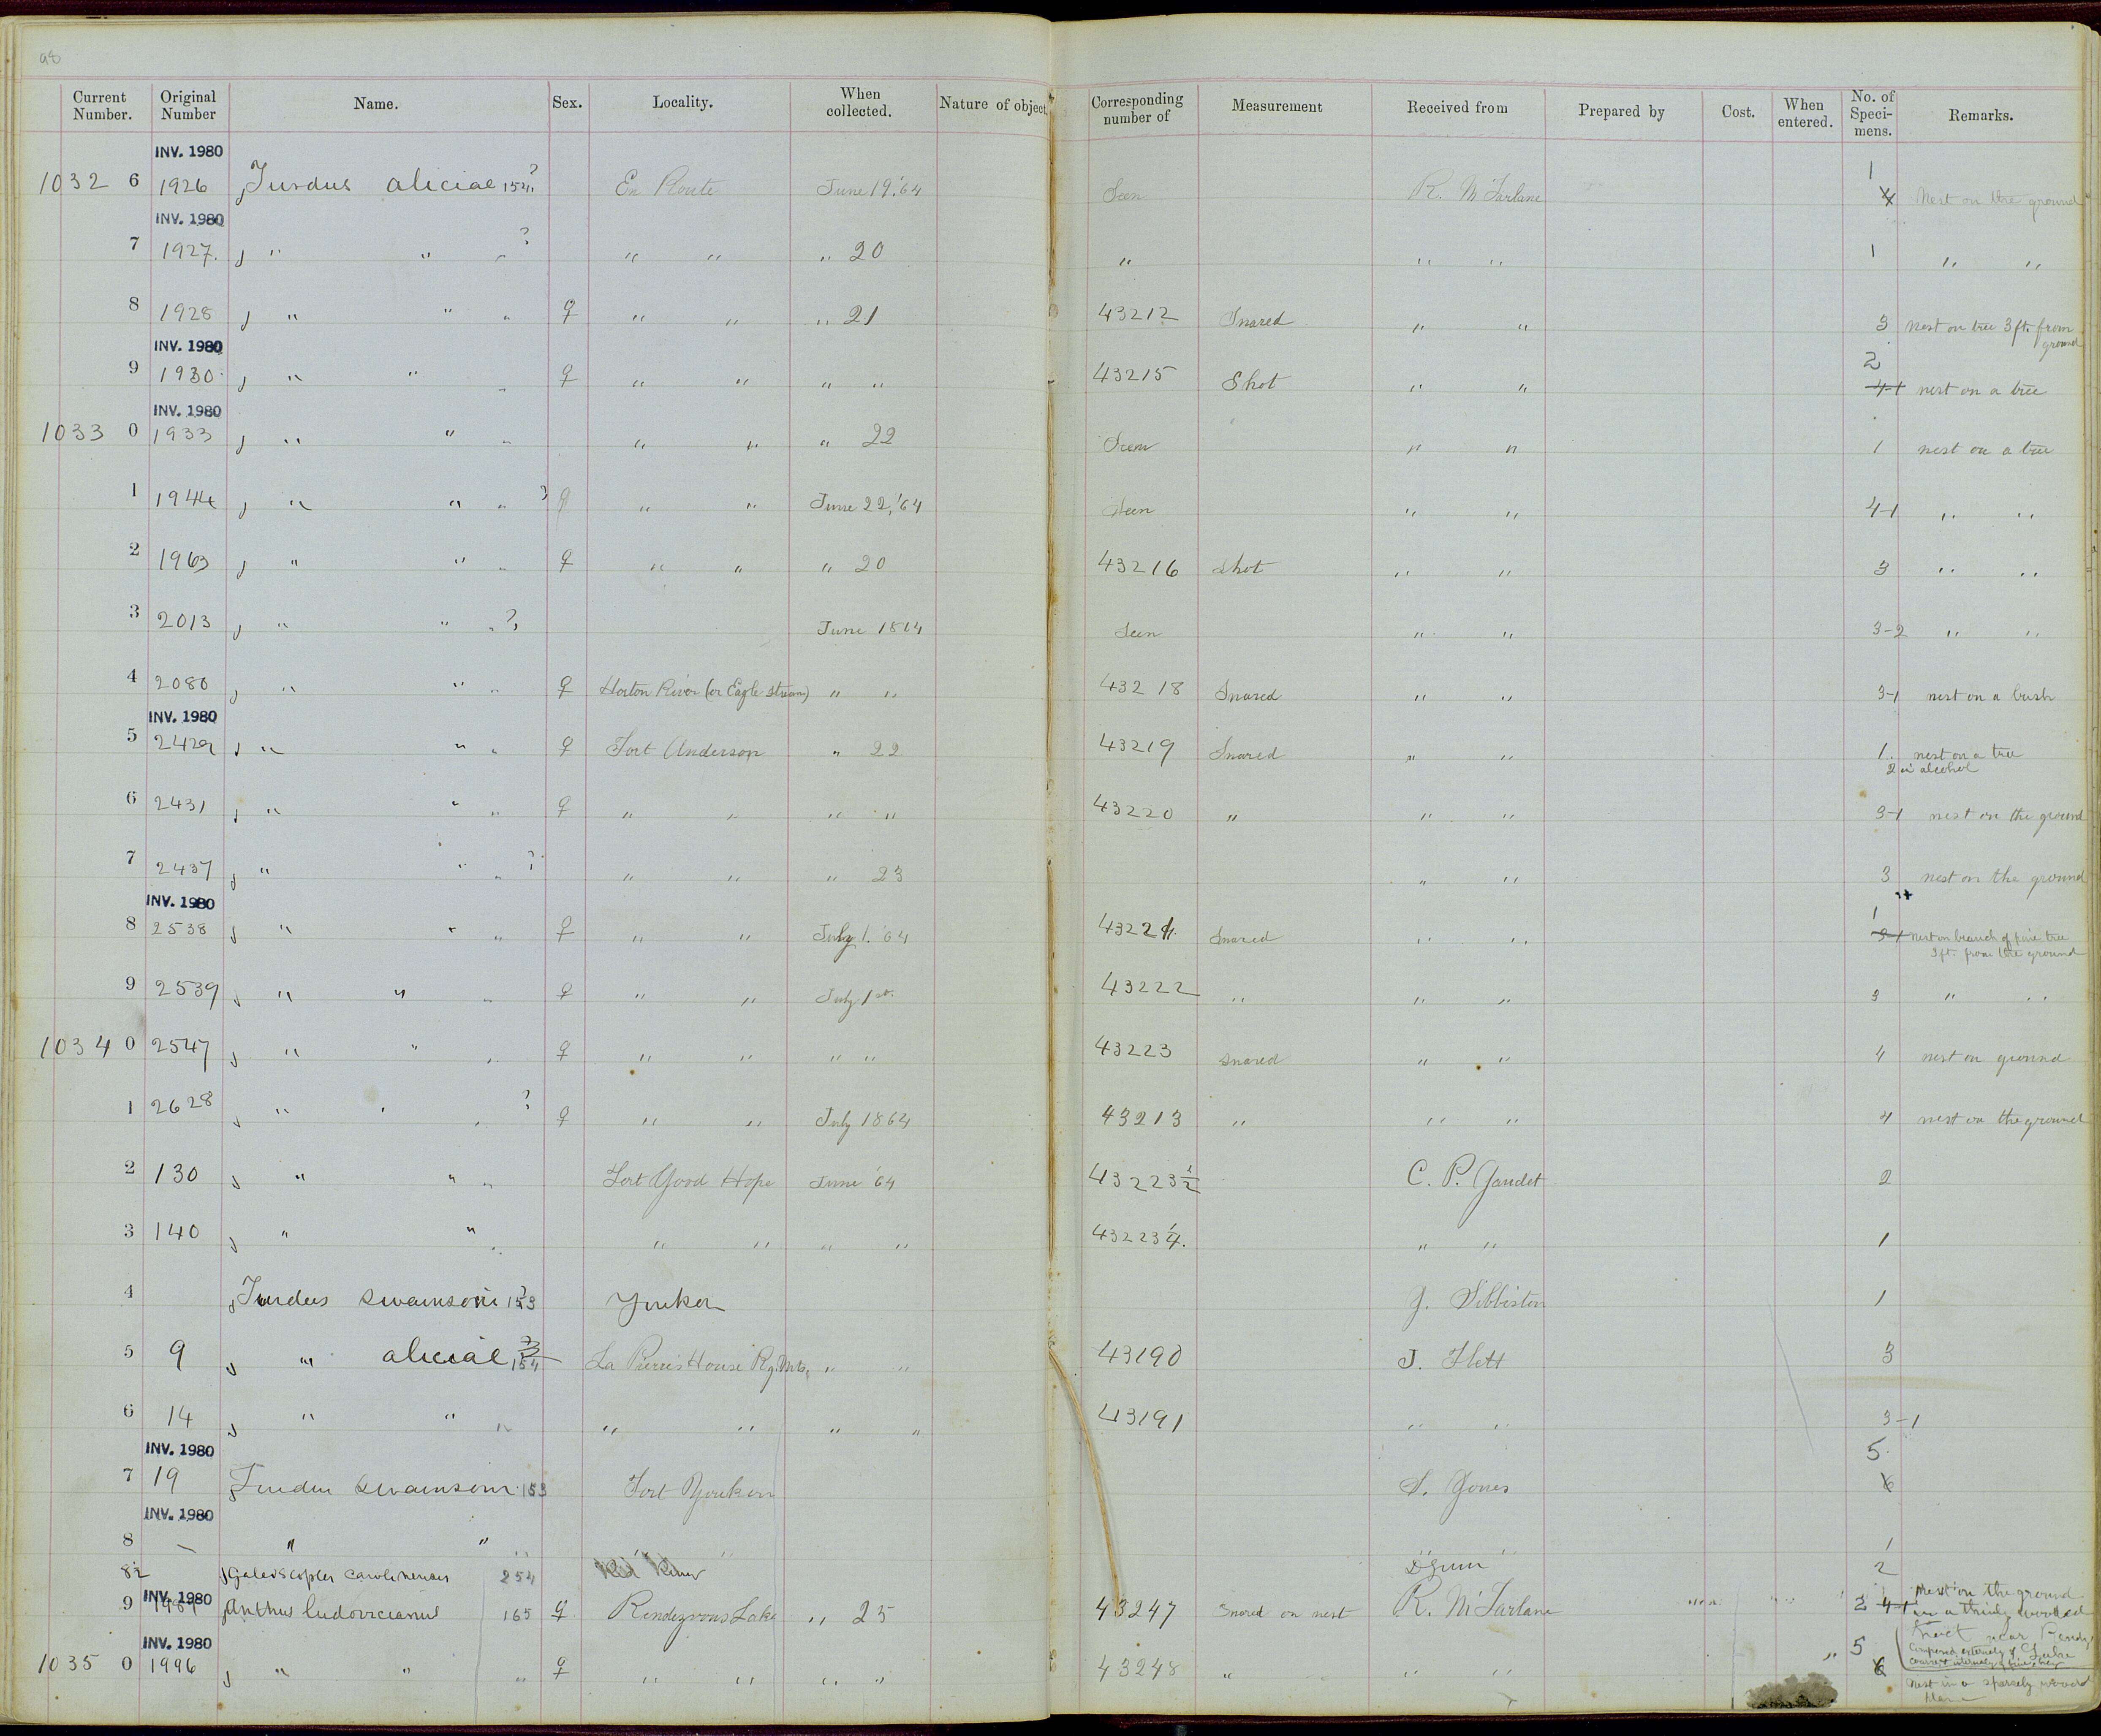 98
Current Number. Original Number Name. Sex. Locality. When collected. Nature of object. Corresponding number of Measurement Received from Prepared by Cost. When entered. No. of Specimens. Remarks.
INV. 1980 1
1032 6 1926 Turdus aliciae 154 ? En Route June 19. '64 Seen R. McFarlane 4 Nest on the ground
INV. 1980
7 1927. " " " ? " " " 20 " " " 1 " "
8 1928 " " " ♀ " " " 21 43212 Snared " " 3 nest on tree 3 ft. from ground
INV. 1980 2
9 1930 " " " ♀ " " " " 43215 Shot " " 4-1 nest on a tree
INV. 1980
1033 0 1933 " " " " " " 22 Seen " " 1 nest on a tree
1 1944 " " " ? ♀ " " June 22, '64 Seen " " 4-1 " "
2 1963 " " " ♀ " " " 20 43216 Shot " " 3 " "
3 2013 " " " ? June 1864 Seen " " 3-2 " "
4 2080 " " " ♀ Horton River (or Eagle stream) " " 43218 Snared " " 3-1 nest on a bush
INV. 1980
5 2429 " " " ♀ Fort Anderson " 22 43219 Snared " " 1. nest on a tree
2 in alcohol
6 2431 " " " ♀ " " " " 43220 " " " 3-1 nest on the ground
7 2437 " " " ? " " " 23 " " 3 nest on the ground
INV. 1980 1
8 2538 " " " ♀ " " July 1. '64 43221. Snared " " 3-1 nest on branch of pine tree
3 ft. from the ground
9 2539 " " " ♀ " " July 1st. 43222 " " " 3 " "
1034 0 2547 " " " ♀ " " " " 43223 Snared " " 4 nest on ground
1 2628 " " " ? ♀ " " July 1864 43213 " " " 4 nest on the ground
2 130 " " " Fort Good Hope June '64 43223½ C. P. Gaudet 2
3 140 " " " " " " " 43223¼. " " 1
4 Turdus swainsoni 153 ? Youkon J. Sibbiston 1
5 9 " aliciae 154 La Pierres House Ry. Mts. " " 43190 J. Flett 3
6 14 " " " " " " " 43191 " " 3-1
INV. 1980 5
7 19 Turdus swainsoni 153 Fort Youkon S. Jones 6
INV. 1980
8 — " " " " " " " 1
8½ Galeoscoptes carolinensis 254 Red River Gunn 2
INV. 1980
9 Anthus ludovicianus 165 ♀ Rendezvous Lake " 25 43247 Snared on nest R. McFarlane 2 4-1 Nest on the ground
in a thinly wooded
tract near
INV. 1980
1035 0 1996 " " " ♀ " " " " 43248 " " " 5 6 Nest in a sparsely wooded